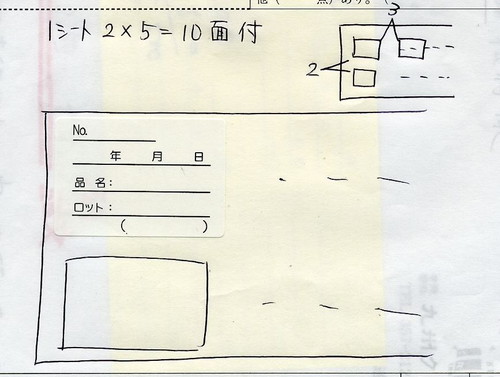 他(　　点)あり。(
1シート 2×5=10面付
3
2
No.
年　月　日
品 名:
ロット:
(　　　)